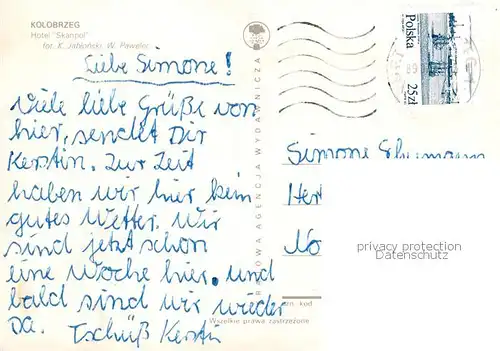 KOLOBRZEG
Hotel "Skanpol"
fot. K. Jabłoński, W. Pawelec
Liebe Simone!
Viele liebe Grüße von
hier, sendet Dir
Kerstin. Zur Zeit
haben wir hier kein
gutes Wetter. Wir
sind jetzt schon
eine Woche hier, und
bald sind wir wieder
da. Tschüß Kerstin
KRAJOWA AGENCJA WYDAWNICZA
Polska
25zł
89
Simone
privacy protection
Datenschutz
kod
Wszelkie prawa zastrzeżone